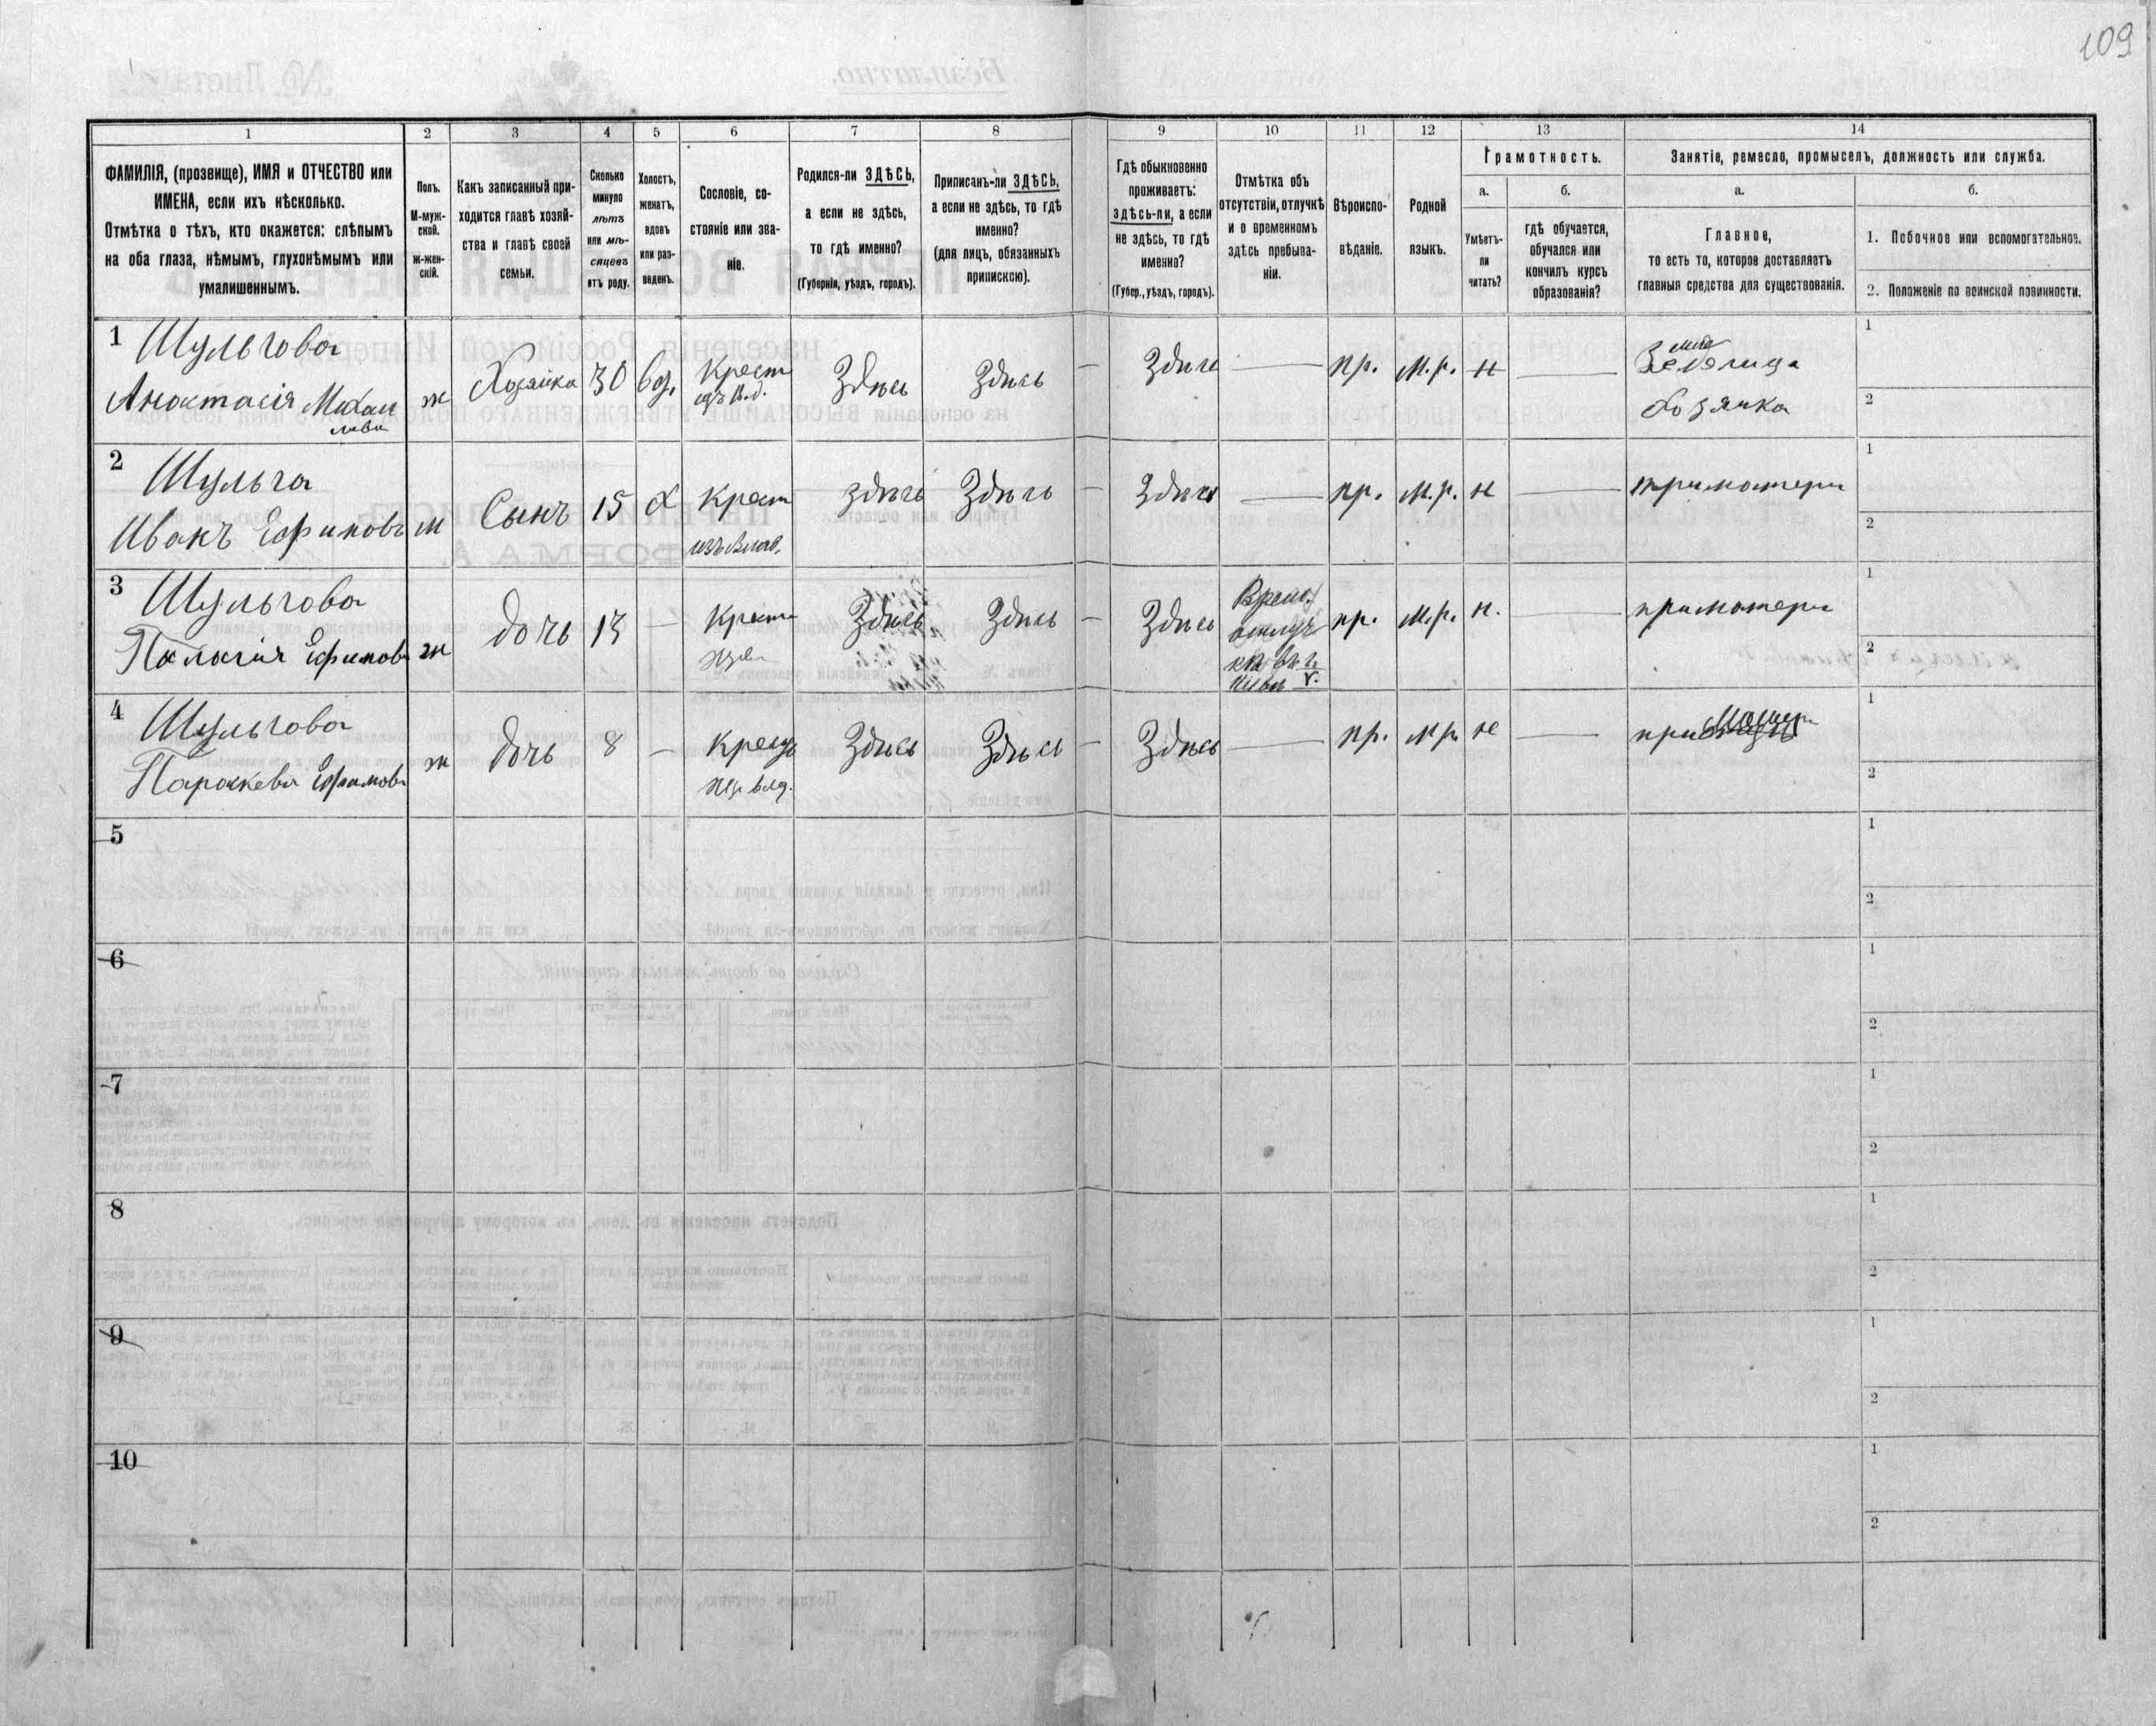 109
1 2 3 4 5 6 7 8 9 10 11 12 13 14
ФАМИЛІЯ, (прозвище), ИМЯ и ОТЧЕСТВО или
ИМЕНА, если ихъ нѣсколько.
Отмѣтка о тѣхъ, кто окажется: слѣпымъ
на оба глаза, нѣмымъ, глухонѣмымъ или
умалишеннымъ.
Полъ.
М-муж-
ской.
Ж-жен-
скій.
Какъ записанный при-
ходится главѣ хозяй-
ства и главѣ своей
семьи.
Сколько
минуло
лѣтъ
или мѣ-
сяцевъ
отъ роду.
Холостъ,
женатъ,
вдовъ
или раз-
веденъ.
Сословіе, со-
стояніе или зва-
ніе.
Родился-ли ЗДѢСЬ,
а если не здѣсь,
то гдѣ именно?
(Губернія, уѣздъ, городъ).
Приписанъ-ли ЗДѢСЬ,
а если не здѣсь, то гдѣ
именно?
(для лицъ, обязанныхъ
припискою).
Гдѣ обыкновенно
проживаетъ:
здѣсь-ли, а если
не здѣсь, то гдѣ
именно?
(Губер., уѣздъ, городъ).
Отмѣтка объ
отсутствіи, отлучкѣ
и о временномъ
здѣсь пребыва-
ніи.
Вѣроиспо-
вѣданіе.
Родной
языкъ.
Грамотность.
а.
Умѣетъ-
ли
читать?
б.
гдѣ обучается,
обучался или
кончилъ курсъ
образованія?
Занятіе, ремесло, промыселъ, должность или служба.
а.
Главное,
то есть то, которое доставляетъ
главныя средства для существованія.
б.
1. Побочное или вспомогательное.
2. Положеніе по воинской повинности.
1 Шульгова
Анастасія Михаи
лова
ж Хозяйка 30 вд. Крест
Здѣсь Здѣсь — Здѣсь — пр. м.р. н —
Хозяйка
1
2
2 Шульга
Иванъ Ефимовъ
м Сынъ 15 х Крест
изъ влад.
здѣсь Здѣсь — Здѣсь — пр. м.р. н — при матери
1
2
3 Шульгова
Палагія Ефимова
ж дочь 13 — Крест
Здѣсь Здѣсь — Здѣсь
Врем.
отлуч
пр. м.р. н. — при матери
1
2
4 Шульгова
Параскева Ефимова
ж дочь 8 — Крест
изъ влад.
Здѣсь Здѣсь — Здѣсь — пр. м.р. н — при матери
1
2
5
1
2
6
1
2
7
1
2
8
1
2
9
1
2
10
1
2